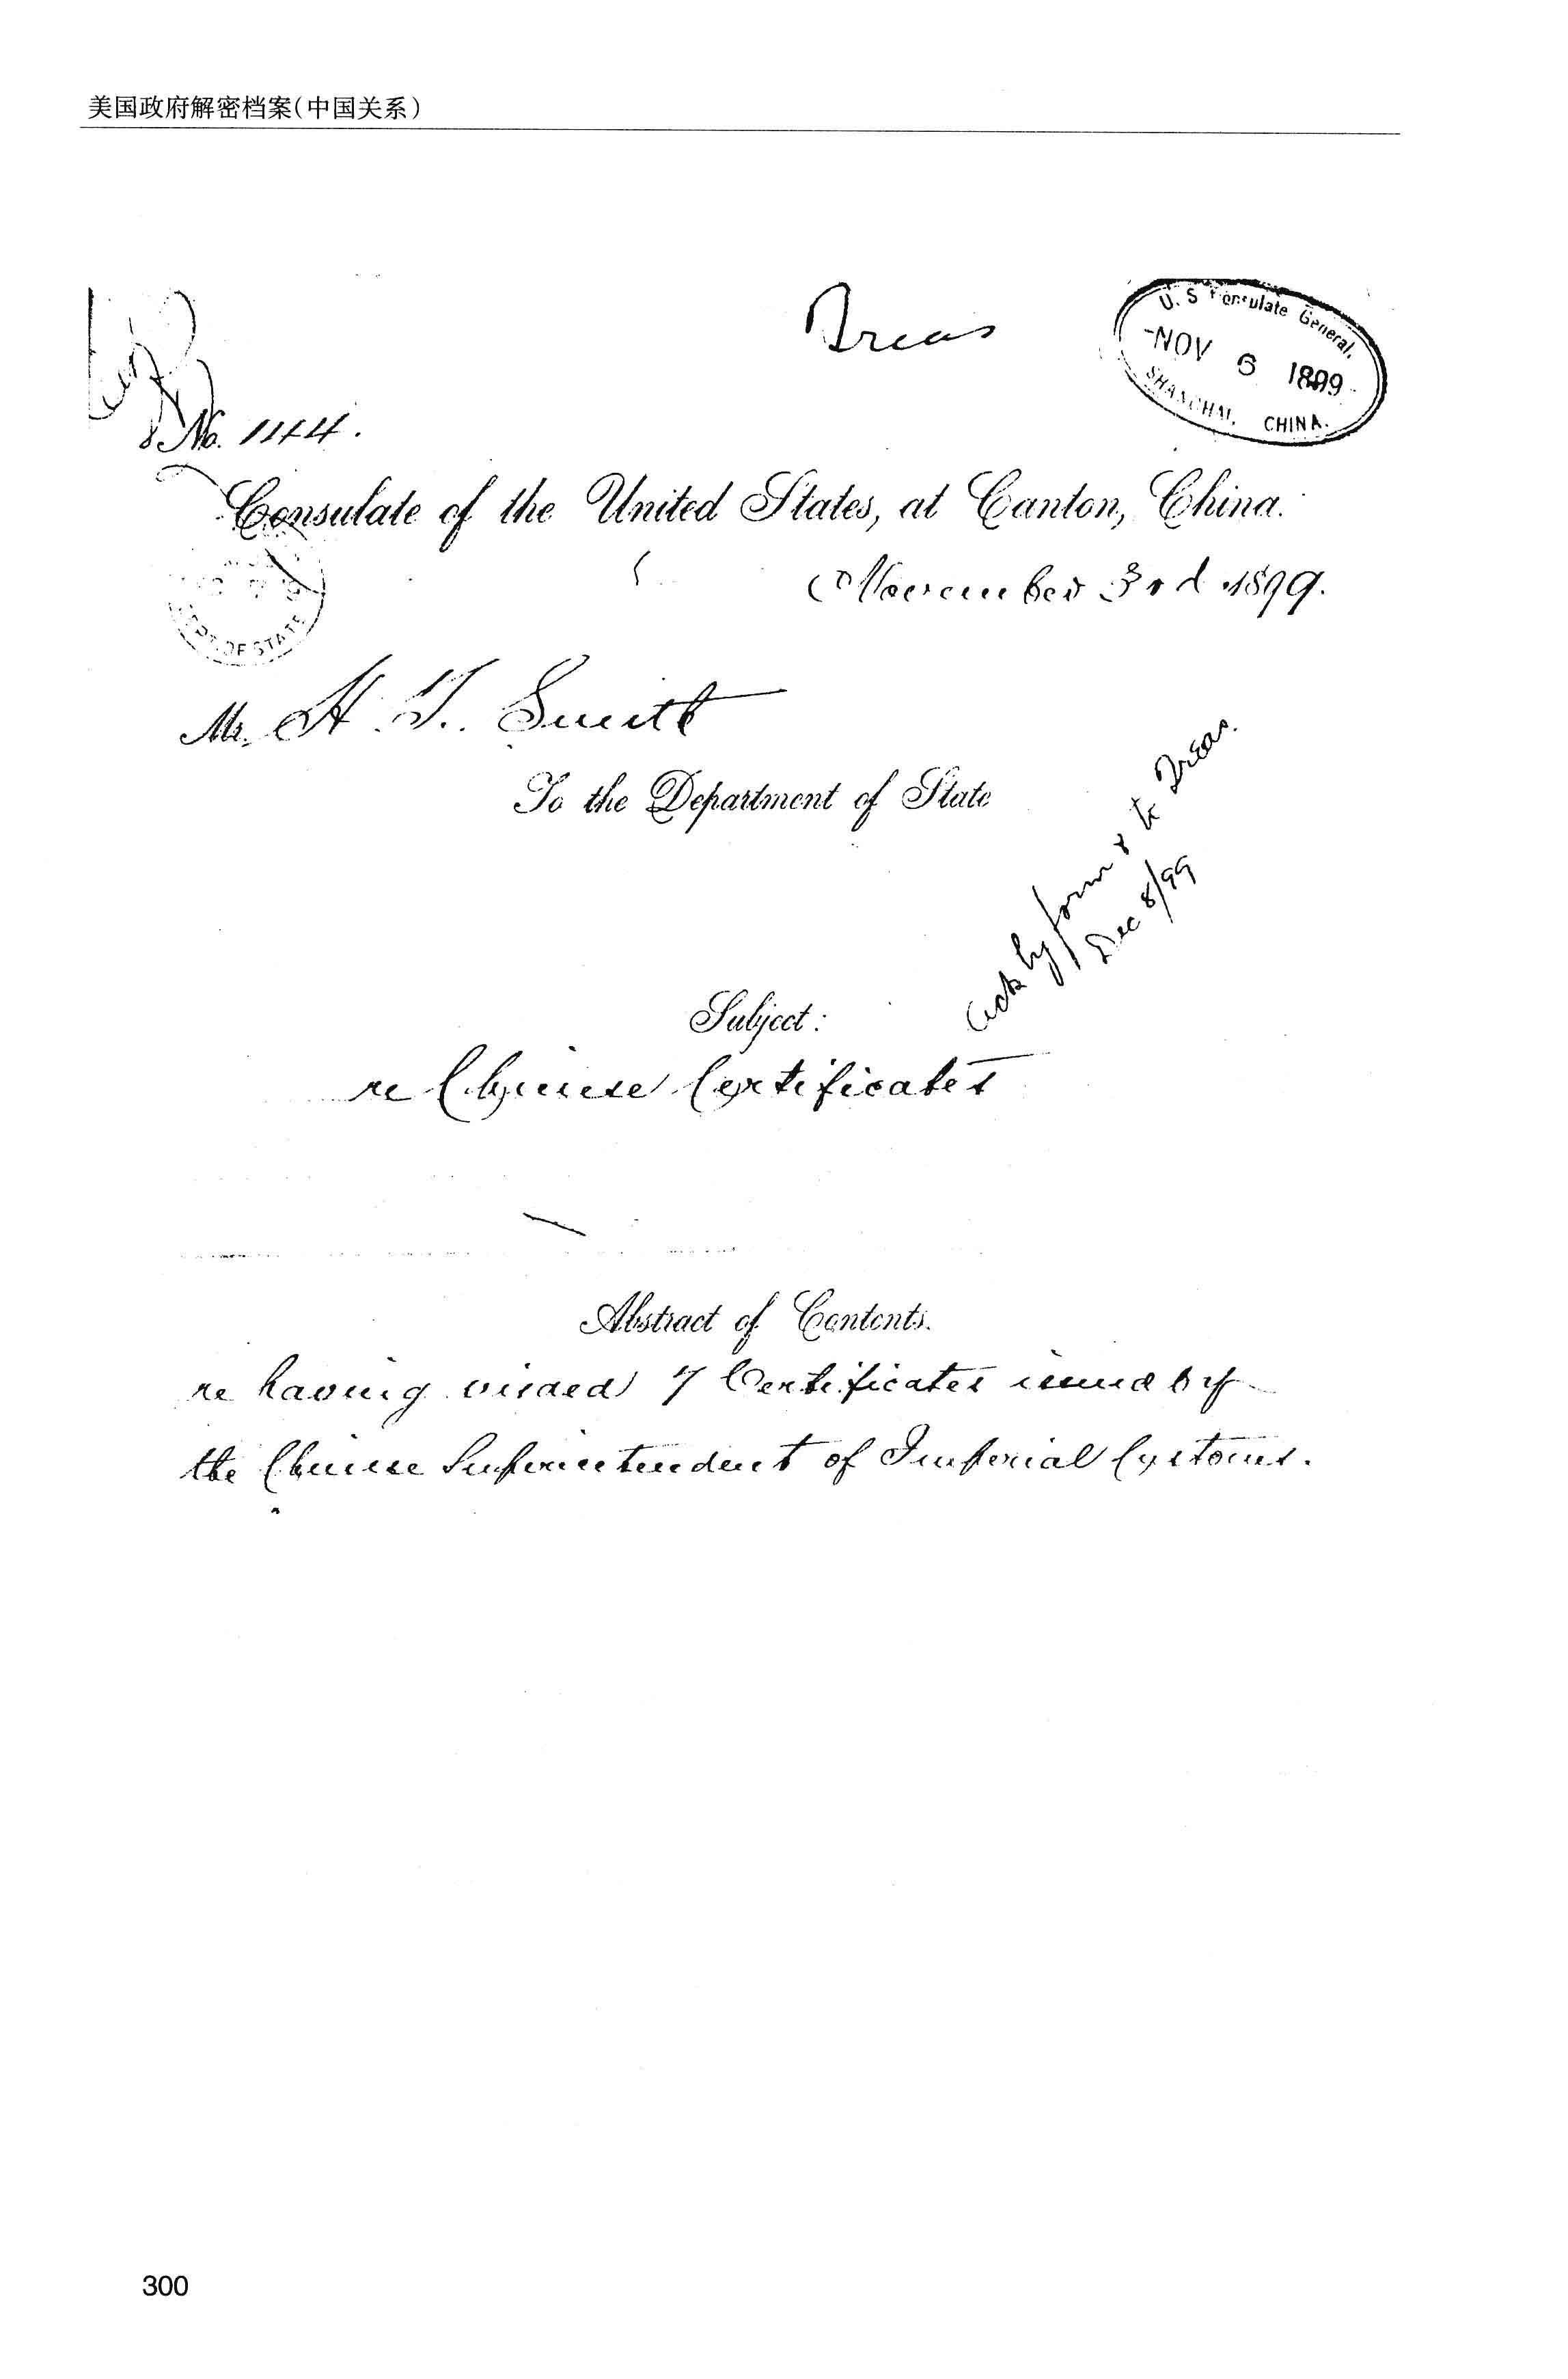 美国政府解密档案(中国关系)
Treas
U. S Consulate General.
NOV 6 1899
SHANGHAI, CHINA.
No. 144.
Consulate of the United States, at Canton, China.
November 3rd 1899.
DEPT. OF STATE
Mr. H. T. Smith
To the Department of State
ack by form & to Treas.
Dec 8/99
Subject:
re Chinese Certificates
Abstract of Contents.
re having visaed 7 Certificates issued by
the Chinese Superintendent of Imperial Customs.
300